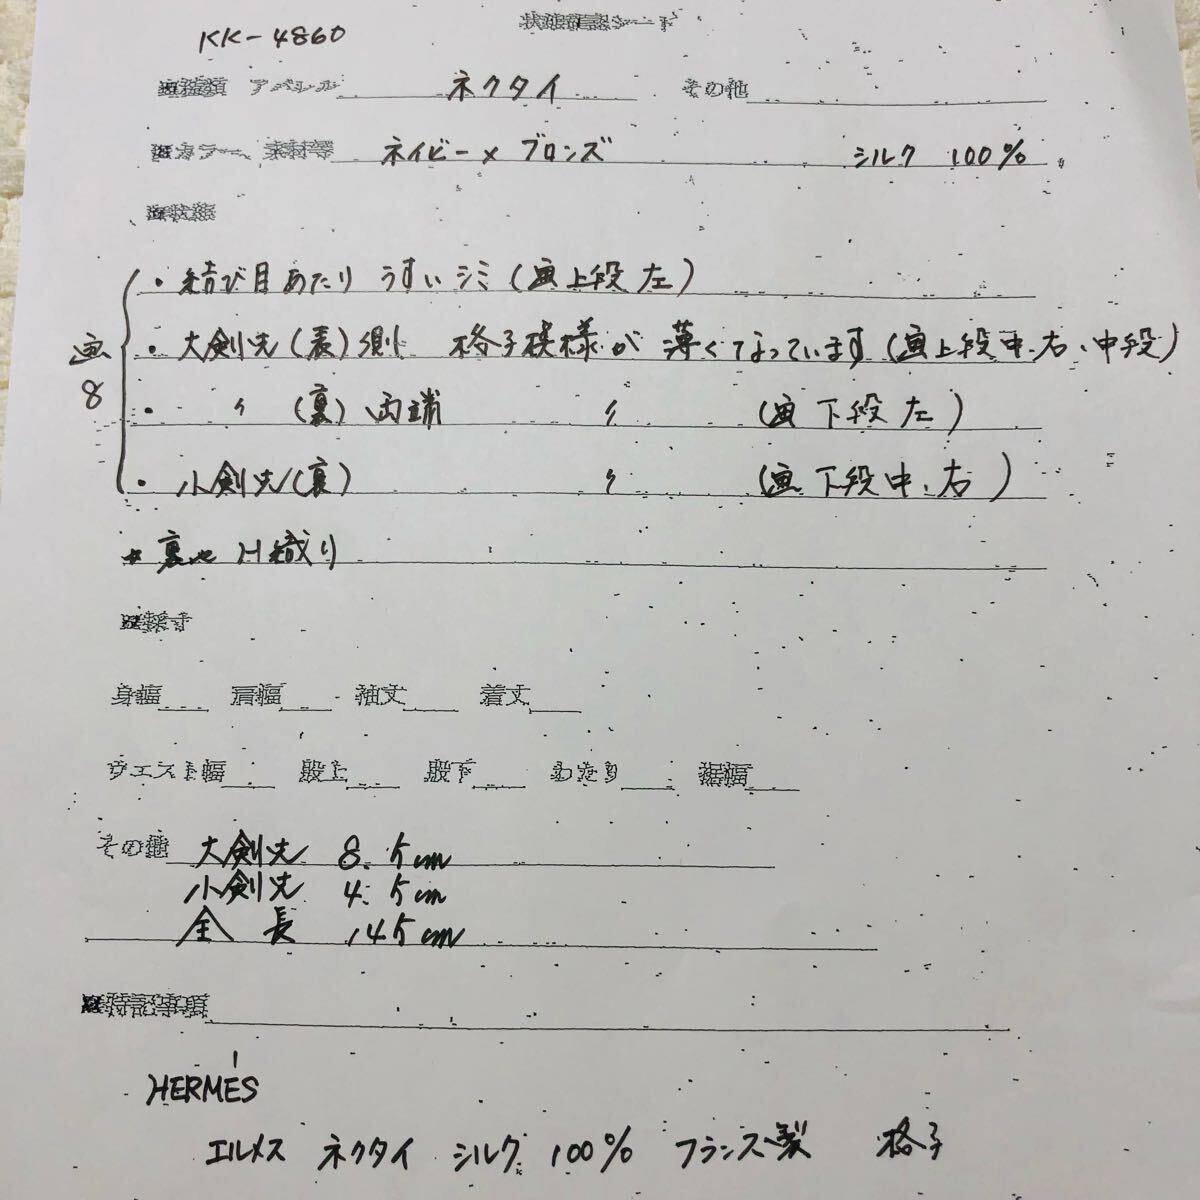 状態確認シート
KK-4860
アパレル ネクタイ その他
カラー、素材等 ネイビー×ブロンズ シルク 100%
状態
・結び目あたり うすいシミ(画上段左)
・大剣先(表)側 格子模様が薄くなっています(画上段中、右、中段)
画8
・ 〃 (裏)両端 〃 (画下段左)
・小剣先(裏) 〃 (画下段中、右)
☆裏地 H織り
採寸
身幅 肩幅 袖丈 着丈
ウエスト幅 股上 股下 わたり 裾幅
その他 大剣先 8.5cm
小剣先 4.5cm
全長 145cm
特記事項
HERMÉS
エルメス ネクタイ シルク 100% フランス製 格子